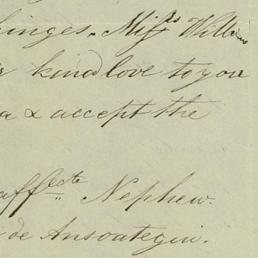 hinges. Miſs Williams
kind love to you
a & accept the
affecte Nephew.
de Ansoategui.